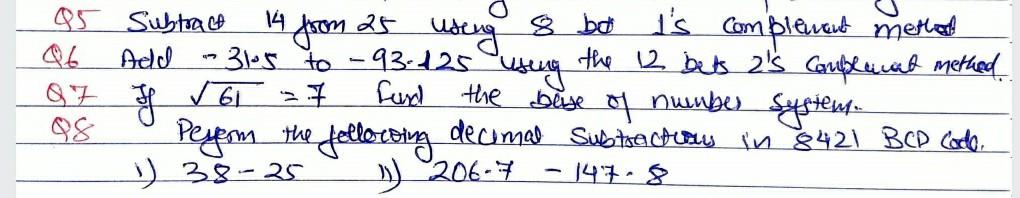 Q5 Subtract 14 from 25 using 8 bit 1's complement method
Q6 Add -31.5 to -93.125 using the 12 bits 2's complement method.
Q7 If √61 = 7 find the base of number system.
Q8 Perform the following decimal subtractions in 8421 BCD Code.
i) 38 - 25 ii) 206.7 - 147.8